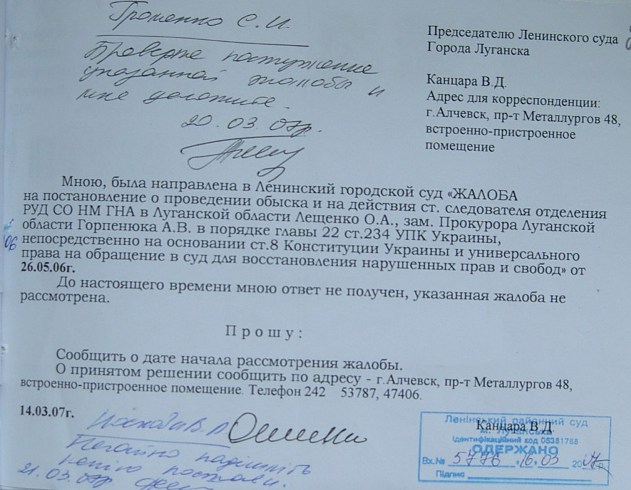 Громенко С.И.
Проверьте поступление
указанной жалобы и
мне доложите.
20.03.07г.
Председателю Ленинского суда
Города Луганска
Канцара В.Д.
Адрес для корреспонденции:
г.Алчевск, пр-т Металлургов 48,
встроенно-пристроенное
помещение
Мною, была направлена в Ленинский городской суд «ЖАЛОБА
на постановление о проведении обыска и на действия ст. следователя отделения
РУД СО НМ ГНА в Луганской области Лещенко О.А., зам. Прокурора Луганской
области Горпенюка А.В. в порядке главы 22 ст.234 УПК Украины,
непосредственно на основании ст.8 Конституции Украины и универсального
права на обращение в суд для восстановления нарушенных прав и свобод» от
26.05.06г.
До настоящего времени мною ответ не получен, указанная жалоба не
рассмотрена.
Прошу:
Сообщить о дате начала рассмотрения жалобы.
О принятом решении сообщить по адресу - г.Алчевск, пр-т Металлургов 48,
встроенно-пристроенное помещение. Телефон 242 53787, 47406.
14.03.07г.
Канцара В.Д
Ленінський районний суд
м. Луганська
Ідентифікаційний код
ОДЕРЖАНО
Вх.№ 5776 16.03 2007г.
Підпис
21.03.07р